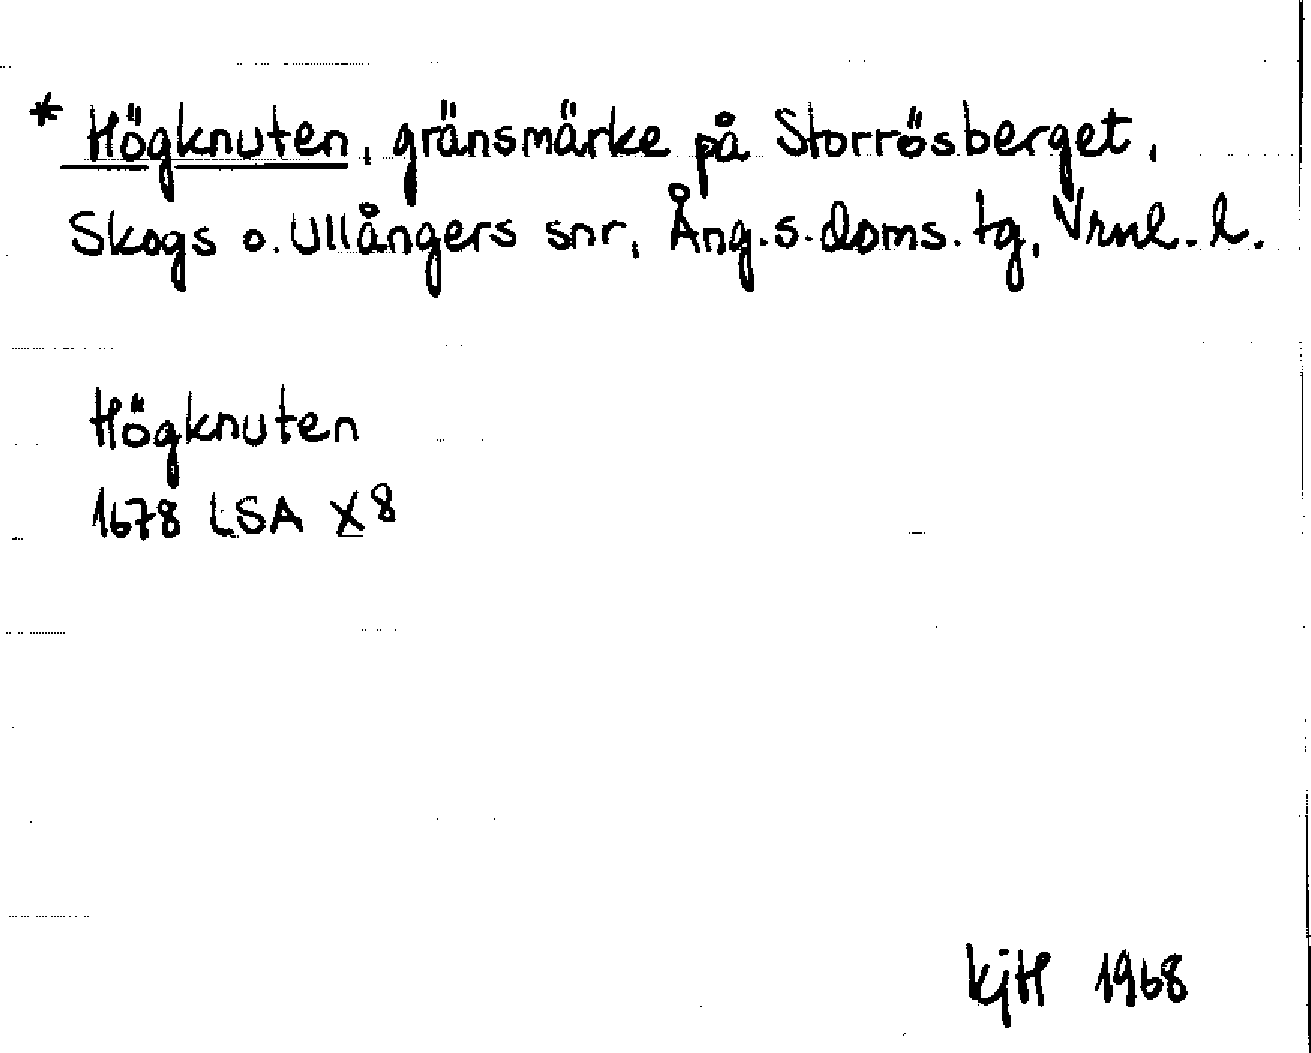 * Högknuten, gränsmärke på Storrösberget,
Skogs o. Ullångers snr, Ång.s. doms. tg, Vrnl. l.
Högknuten
1678 LSA X8
KjH 1968